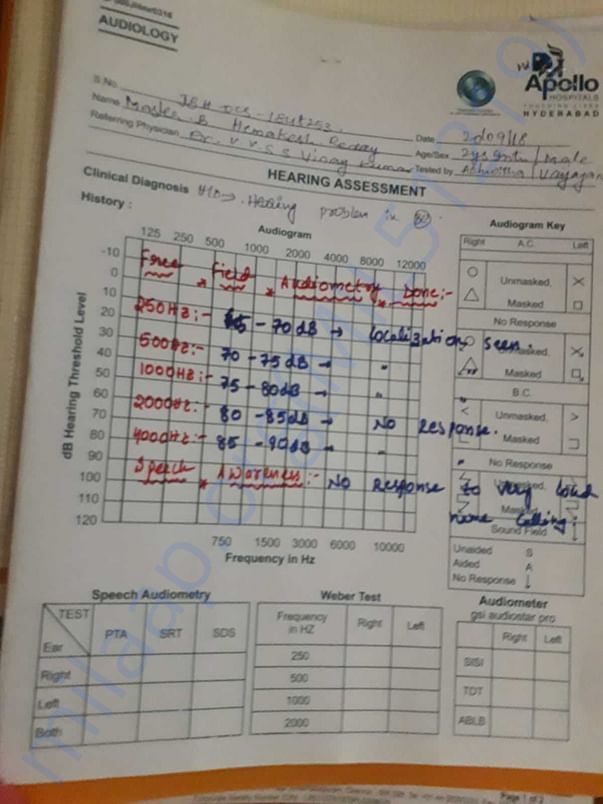 AUDIOLOGY
Apollo
HOSPITALS
TOUCHING LIVES
HYDERABAD
S.No.
Name Master. B Hemakesh Reddy
Date 20/09/18
Referring Physician Dr. V.V.S.S Vinay Kumar
Age/Sex Male
Tested by
HEARING ASSESSMENT
Clinical Diagnosis H/O → Hearing problem in
History :
Audiogram
125 250 500 1000 2000 4000 8000 12000
-10
0
10
20
30
40
50
60
70
80
90
100
110
120
dB Hearing Threshold Level
Free * Field * Audiometry * Done:-
250Hz:- 65 - 70dB → localization seen.
500Hz:- 70 - 75dB → "
1000Hz:- 75 - 80dB → "
2000Hz:- 80 - 85dB → No Response.
4000Hz:- 85 - 90dB → "
Speech * Awareness:- No Response to very loud
name calling.
750 1500 3000 6000 10000
Frequency in Hz
Audiogram Key
Right A.C. Left
Unmasked
Masked
No Response
Unmasked
Masked
B.C.
Unmasked
Masked
No Response
Unmasked
Masked
Sound Field
Unaided S
Aided A
No Response ↓
Speech Audiometry
TEST
PTA SRT SDS
Ear
Right
Left
Both
Weber Test
Frequency in HZ Right Left
250
500
1000
2000
Audiometer
gsi audiostar pro
Right Left
SISI
TDT
ABLB
Page 1 of 2